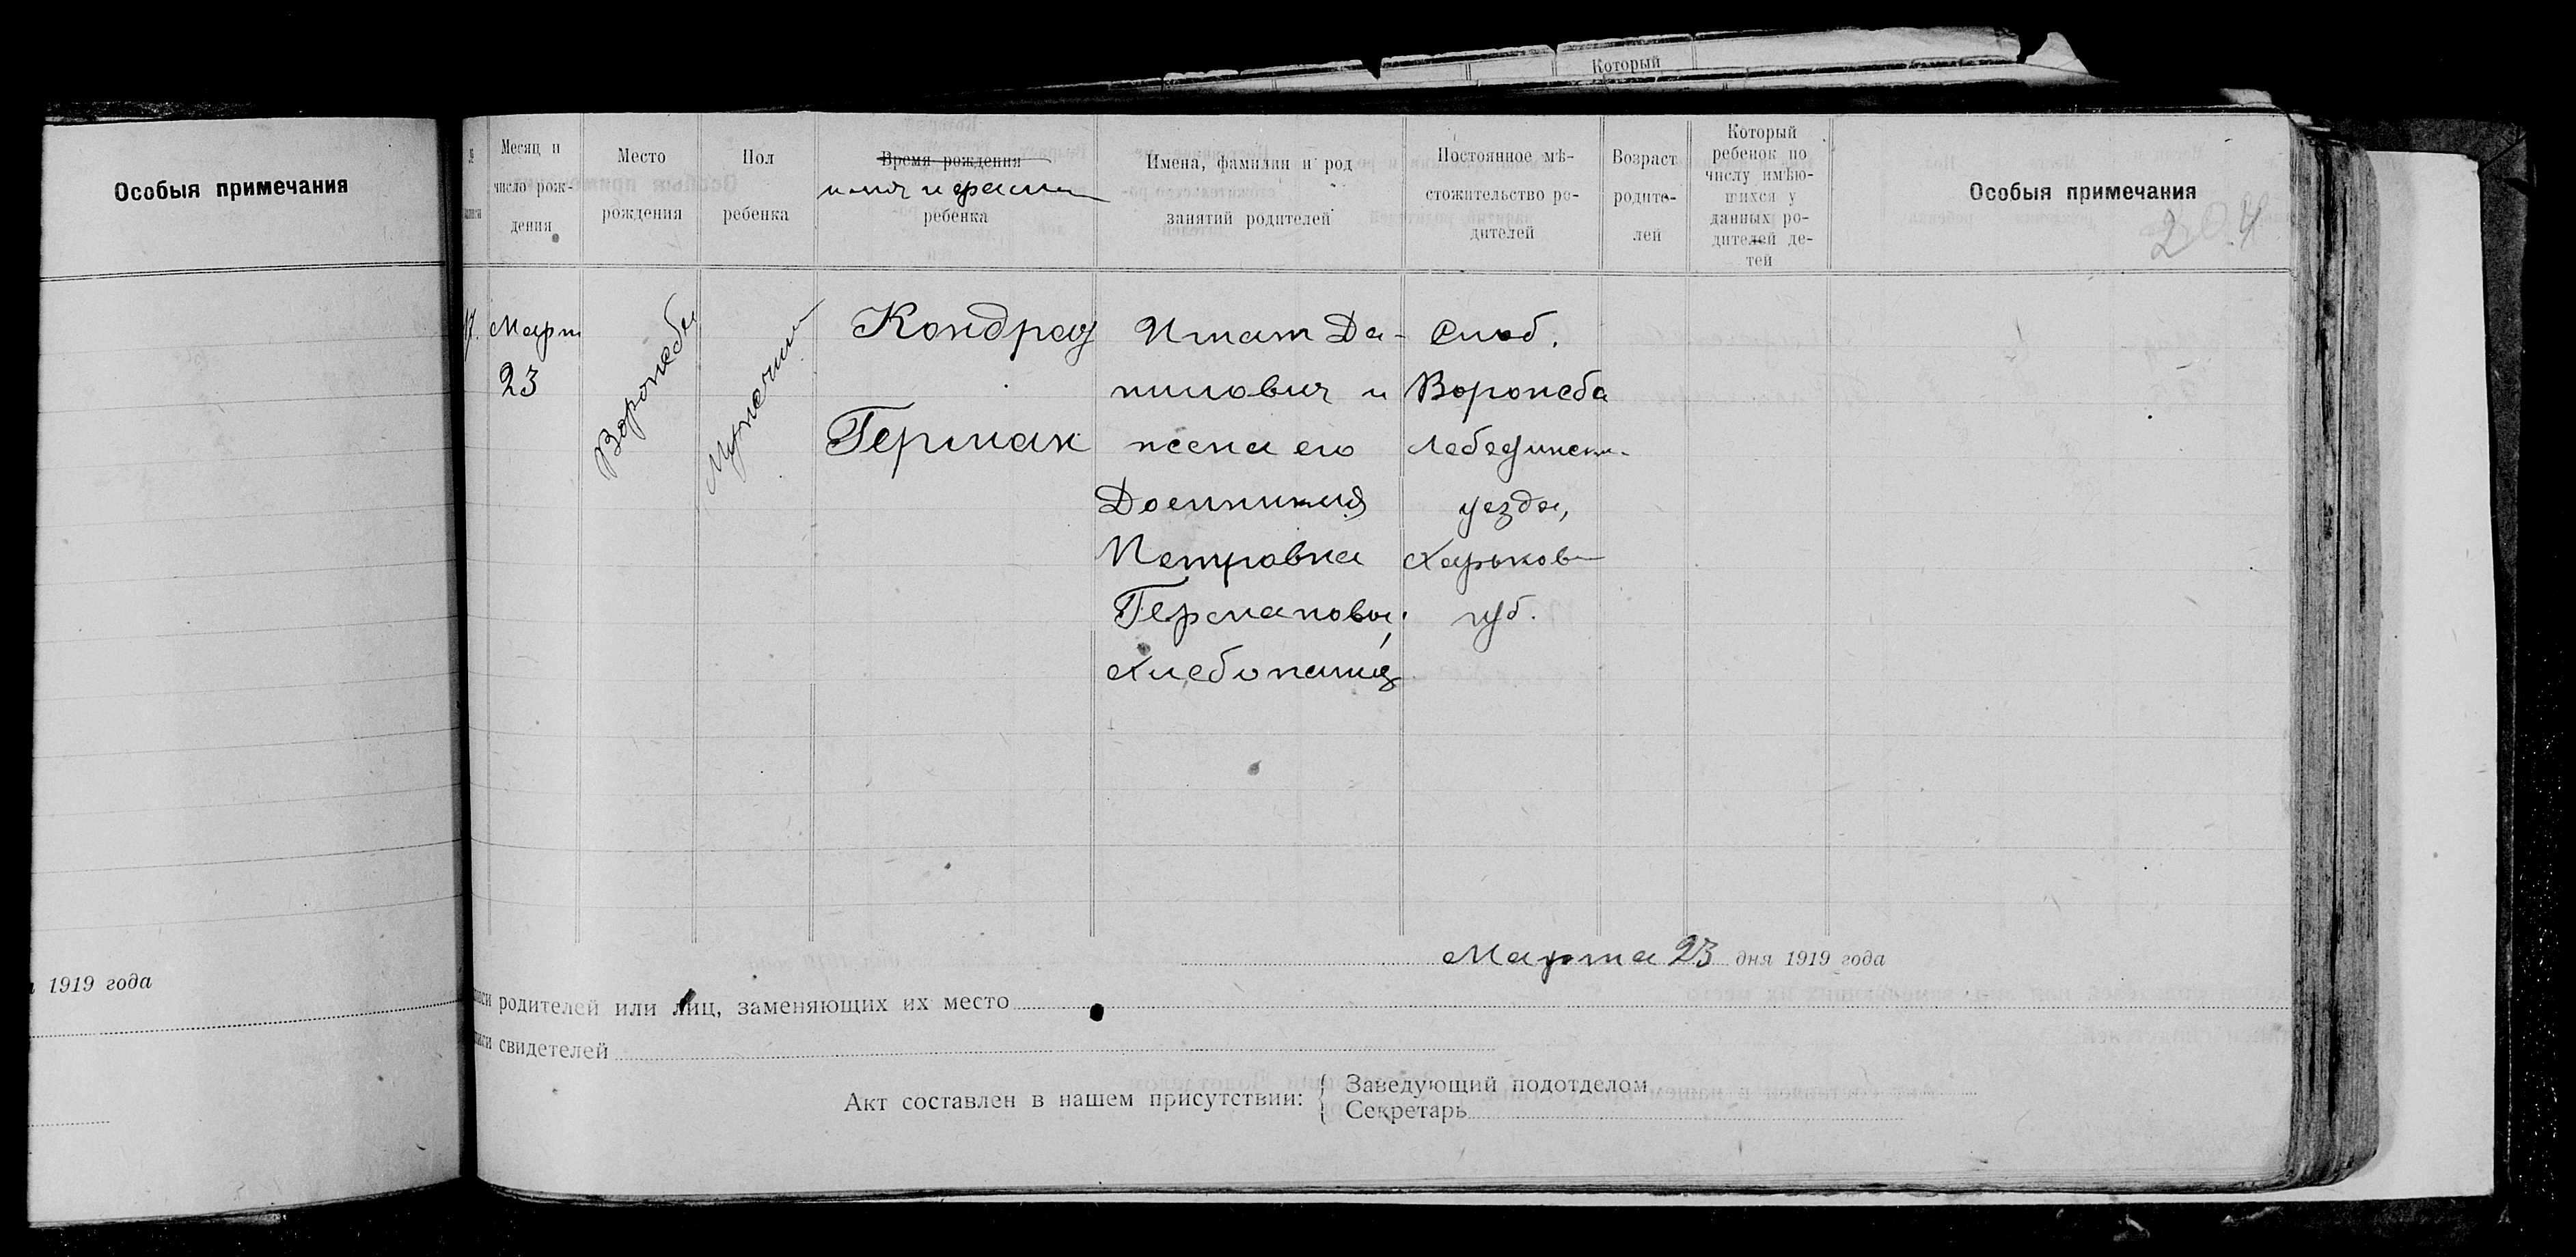 Который
Особыя примечания
1919 года
№
Месяц и
число рож-
дения
Место
рождения
Пол
ребенка
Время рождения
имя и фамил
ребенка
Имена, фамилии и род
занятий родителей
Постоянное мѣ-
стожительство ро-
дителей
Возраст
родите-
лей
Который
ребенок по
числу имѣю-
щихся у
данных ро-
дителей де-
тей
Особыя примечания
204
Март
23
Воронеба
Мужеский
Кондрат
Герман
Игнат Да-
нилович и
жена его
Домникия
Петровна
Германовы,
хлебопашц
Слоб.
Воронеба
Лебединск.
уезда,
Харьков
губ.
Марта 23 дня 1919 года
родителей или лиц, заменяющих их место
свидетелей
Акт составлен в нашем присутствии:
Заведующий подотделом
Секретарь